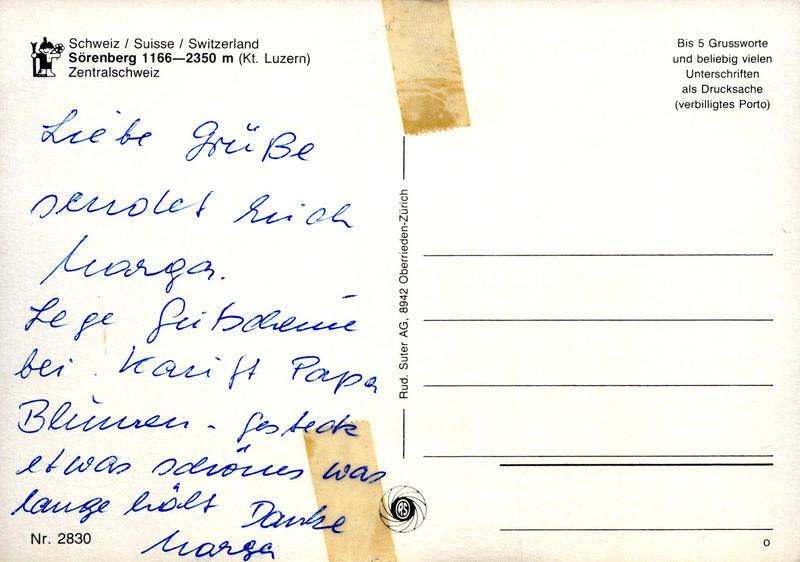 Schweiz / Suisse / Switzerland
Sörenberg 1166—2350 m (Kt. Luzern)
Zentralschweiz
Bis 5 Grussworte
und beliebig vielen
Unterschriften
als Drucksache
(verbilligtes Porto)
Liebe Grüße
sendet Euch
Marga.
Lege Gutscheine
bei. Kauft Papa
Blumen-gesteck
etwas schönes was
lange hält Danke
Marga
Rud. Suter AG, 8942 Oberrieden-Zürich
Nr. 2830
o